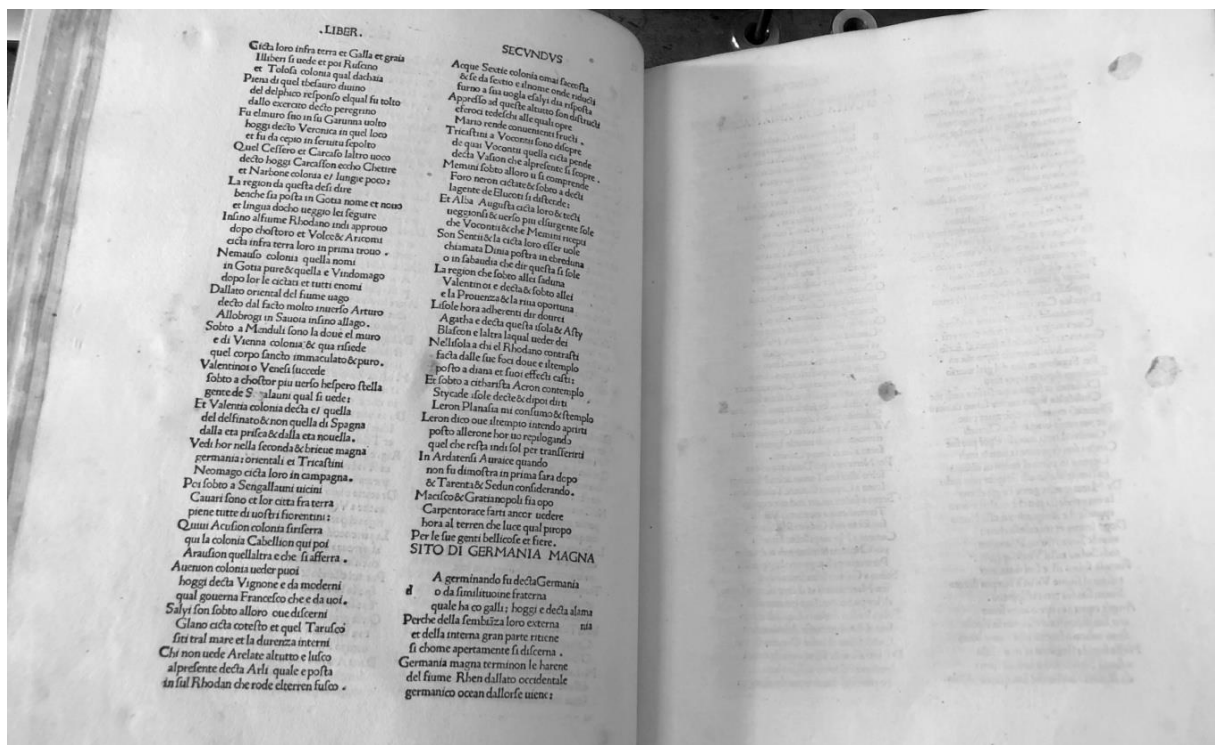 .LIBER.
Cicta loro infra terra et Galla et graia
Illiberi si uede et poi Ruscino
et Tolosa colonia qual dachaia
Piena di quel thesauro diuino
del delphico responso elqual fu tolto
dallo exercito decto peregrino
Fu elmuro sito in su Garunna uolto
hoggi decto Veronica in quel loco
et fu da cepio in seruitu sepolto
Quel Cessero et Carcaso laltro uoco
decto hoggi Carcasson eccho
et Narbone colonia e/ lungie poco:
La region da questa desi dire
benche sia posta in Gotia nome et nouo
et lingua docho ueggio lei seguire
Insino alfiume Rhodano indi approuo
dopo chostoro et Volce & Aricomi
cicta infra terra loro in prima trouo .
Nemauso colonia quella nomi
in Gotia pure & quella e Vindomago
dopo lor le cictati et tutti enomi
Dallato oriental del fiume uago
decto dal facto molto inuerso Arturo
Allobrogi in Sauoia insino allago .
Sobto a Menduli sono la doue el muro
e di Vienna colonia & qua risiede
quel corpo sancto immaculato & puro .
Valentinoi o Venesi succede
sobto a chostor piu uerso hespero stella
gente de S alauni qual si uede:
Et Valentia colonia decta e/ quella
del delfinato & non quella di Spagna
dalla eta prisca & dalla eta nouella .
Vedi hor nella seconda & brieue magna
germania: orientali ei Tricastini
Neomago cicta loro in campagna .
Poi sobto a Sengallauni uicini
Cauari sono et lor citta fra terra
piene tutte di uostri fiorentini:
Quiui Acusion colonia sinserra
qui la colonia Cabellion qui poi
Arausion quellaltra e che si afferra .
Auenion colonia ueder puoi
hoggi decta Vignone e da moderni
qual gouerna Francesco che e da uoi .
Salyi son sobto alloro oue discerni
Glano cicta cotesto et quel Tarusco
siti tral mare et la durenza interni
Chi non uede Arelate altutto e lusco
alpresente decta Arli quale e posta
in sul Rhodan che rode elterren fusco .
SECVNDVS
Acque Sextie colonia omai saccosta
& se da sextio e ilnome onde riducti
furno a sua uogla esalyi dia risposta
Appresso ad queste altutto son distructi
eferoci tedeschi alle quali opre
Mario rende conuenienti fructi .
Tricastini a Vocontii sono disopre
de quai Vocontii quella cicta pende
decta Vasion che alpresente si scopre .
Memini sobto alloro u si comprende
Foro neron cictate & sobto a decti
lagente de Elucoti si distende:
Et Alba Augusta cicta loro & tecti
ueggionsi & uerso piu elsurgente sole
che Vocontii & che Memini ricepti
Son Sentii & la cicta loro esser uole
chiamata Dinia postra in ebreduna
o in sabaudia che dir questa si sole
La region che sobto allei saduna
Valentinoi e decta & sobto allei
e la Prouenza & la riua oportuna
Lisole hora adherenti dir dourei
Agatha e decta questa isola & Asty
Blascon e laltra laqual ueder dei
Nellisola a chi el Rhodano contrasti
facta dalle sue foci doue e iltemplo
posto a diana et suoi effecti casti:
Et sobto a citharista Acron contemplo
Stycade isole decte & dipoi dirti
Leron Planasia mi consumo & stemplo
Leron dico oue iltempio intendo aprirti
posto allerone hor uo repilogando
quel che resta indi sol per transferirti
In Ardatensi Auraice quando
non fu dimostra in prima fara dopo
& Tarenta & Sedun considerando .
Macisco & Gratianopoli sia opo
Carpentorace farti ancor uedere
hora al terren che luce qual piropo
Per le sue genti bellicose et fiere .
SITO DI GERMANIA MAGNA
A germinando fu decta Germania
d o da similituoine fraterna
quale ha co galli; hoggi e decta alama
nia
Perche della sembiāza loro externa
et della interna gran parte ritiene
si chome apertamente si discerna .
Germania magna terminon le harene
del fiume Rhen dallato occidentale
germanico ocean dallorse uiene: